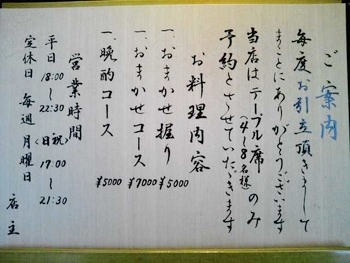 ご案内
毎度、お引立頂きまして
まことにありがとうございます
当店はテーブル席(4〜8名様)のみ
予約とさせていただきます
お料理内容
一、おまかせ握り ¥5000
一、おまかせコース ¥7000
一、晩酌コース ¥5000
営業時間
平日 18:00〜22:30 (日祝) 17:00〜21:30
定休日 毎週月曜日
店主